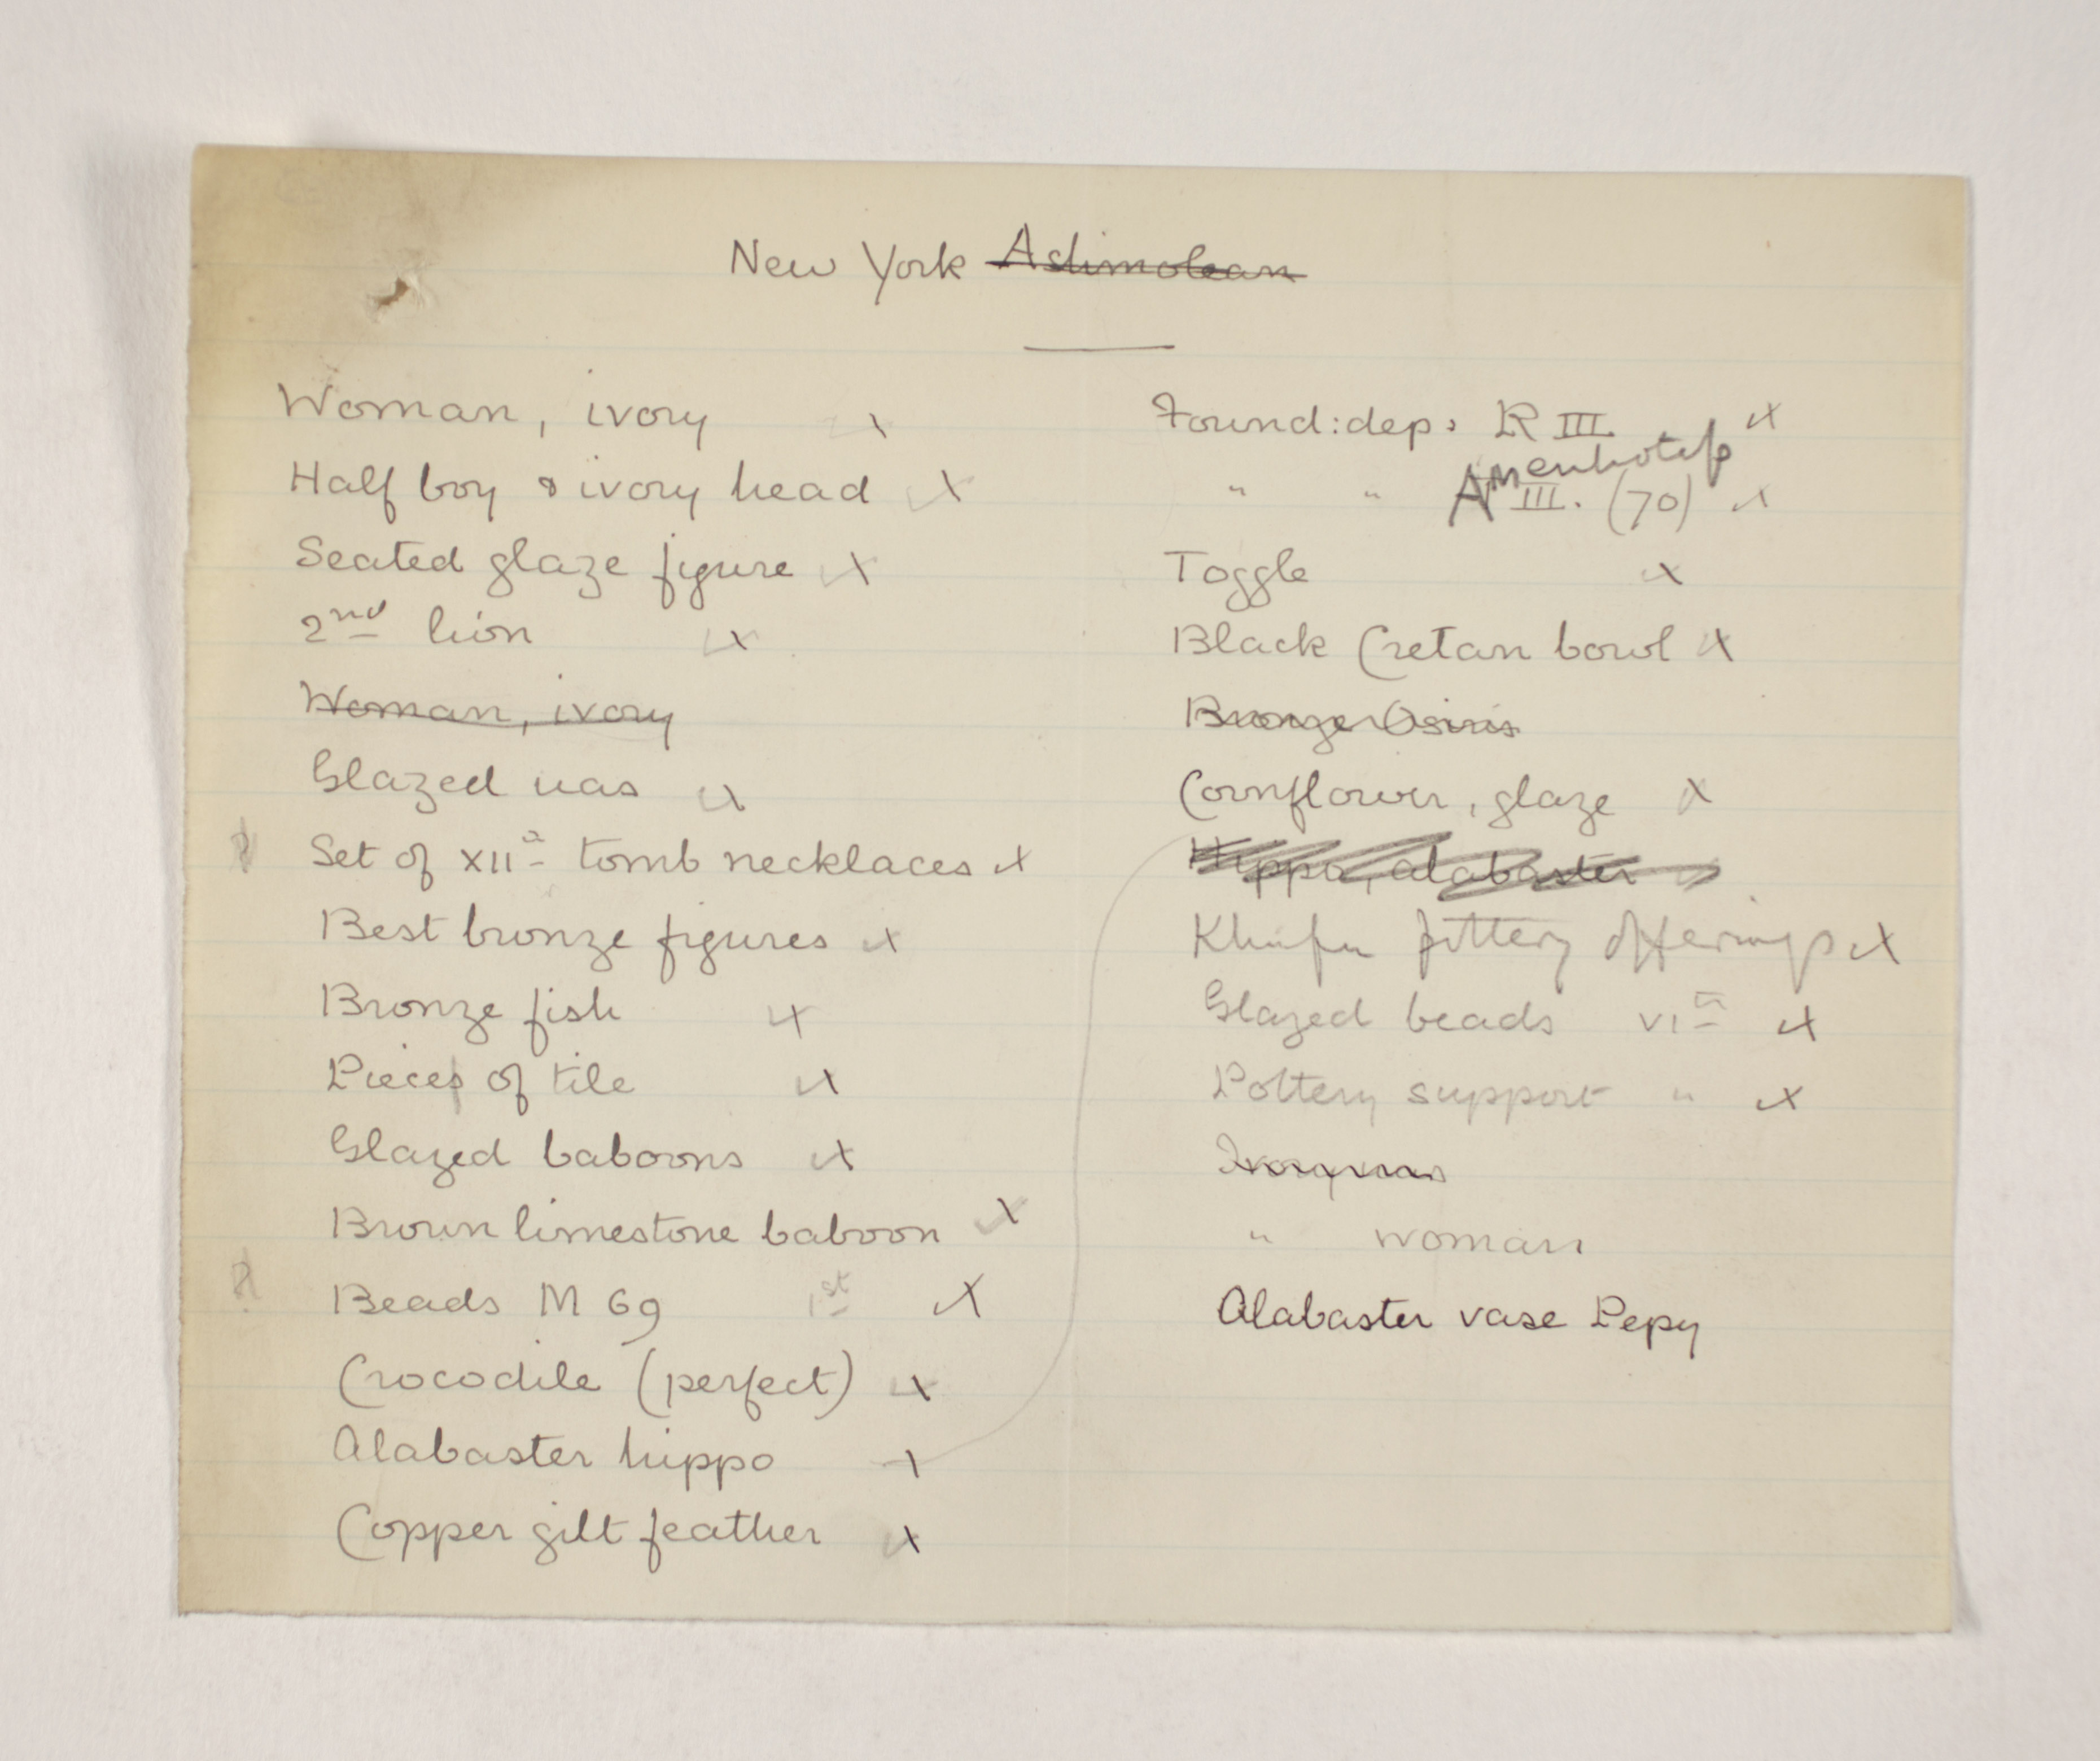 New York Ashmolean
Woman, ivory
Half boy & ivory head
Seated glaze figure
2nd lion
Woman, ivory
Glazed uas
? Set of XIIth tomb necklaces
Best bronze figures
Bronze fish
Pieces of tile
Glazed baboons
Brown limestone baboon
? Beads M 69 1st
Crocodile (perfect)
Alabaster hippo
Copper gilt feather
Found: dep: R III
" " Amenhotep III. (70)
Toggle
Black Cretan bowl
Bronze Osiris
Cornflower, glaze
Hippo, alabaster
Khufu pottery offerings
Glazed beads VIth
Pottery support "
Ivory
" woman
Alabaster vase Pepy